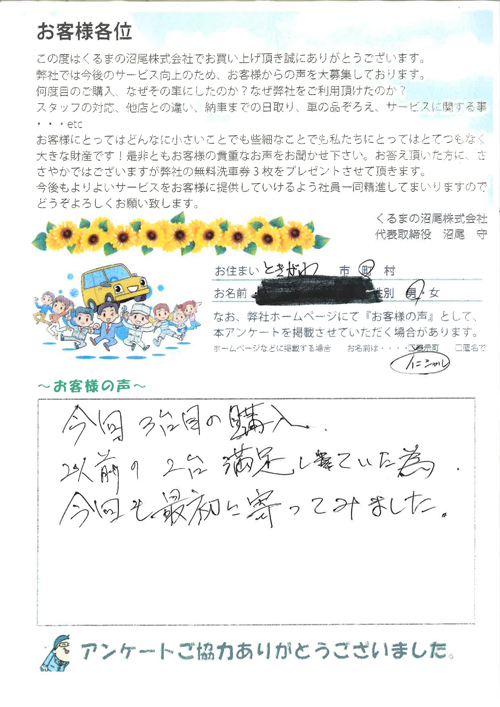 お客様各位
この度はくるまの沼尾株式会社でお買い上げ頂き誠にありがとうございます。
弊社では今後のサービス向上のため、お客様からの声を大募集しております。
何度目のご購入、なぜその車にしたのか?なぜ弊社をご利用頂けたのか?
スタッフの対応、他店との違い、納車までの日取り、車の品ぞろえ、サービスに関する事
・・・etc
お客様にとってはどんなに小さいことでも些細なことでも私たちにとってはとてつもなく
大きな財産です!是非ともお客様の貴重なお声をお聞かせ下さい。お答え頂いた方に、さ
さやかではございますが弊社の無料洗車券3枚をプレゼントさせて頂きます。
今後もよりよいサービスをお客様に提供していけるよう社員一同精進してまいりますので
どうぞよろしくお願い致します。
くるまの沼尾株式会社
代表取締役 沼尾 守
お住まい ときがわ 市 町 村
お名前 性別 男・女
なお、弊社ホームページにて『お客様の声』として、
本アンケートを掲載させていただく場合があります。
ホームページなどに掲載する場合 お名前は・・・・□掲示可 □匿名で
イニシャル
~お客様の声~
今回3台目の購入.
以前の2台満足し ていた為.
今回も最初に寄ってみました。
アンケートご協力ありがとうございました。